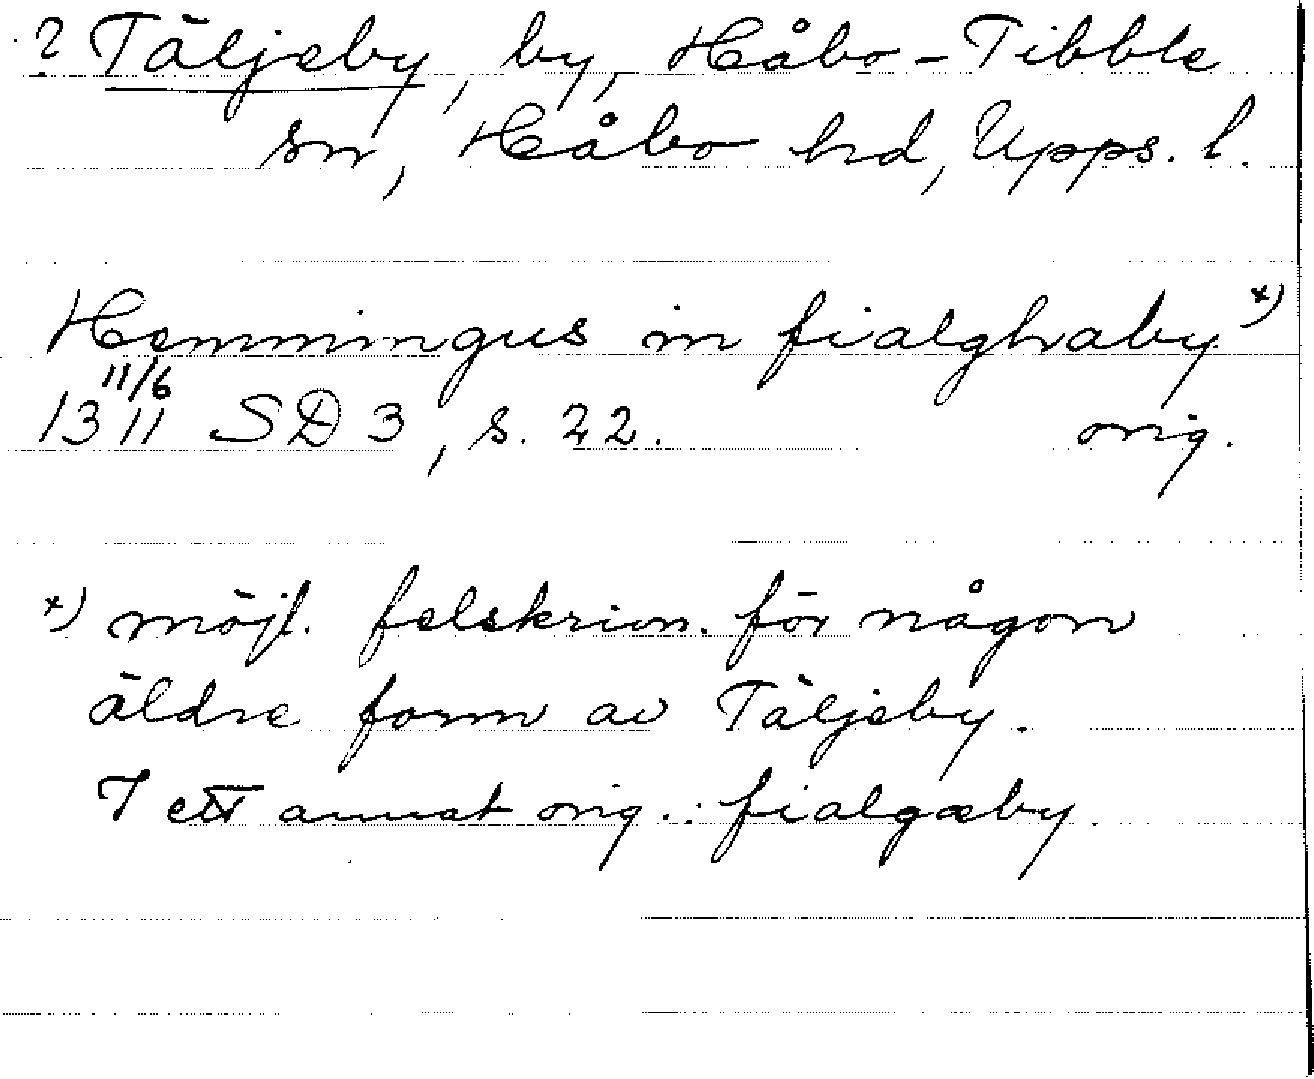 ? Täljeby, by, Håbo-Tibble
sn, Håbo hd, Upps. l.
Hemmingus in fialghaby x)
11/6
1311 SD 3, s. 22. orig.
x) möjl. felskrivn. för någon
äldre form av Täljeby.
I ett annat orig.: fialgæby.